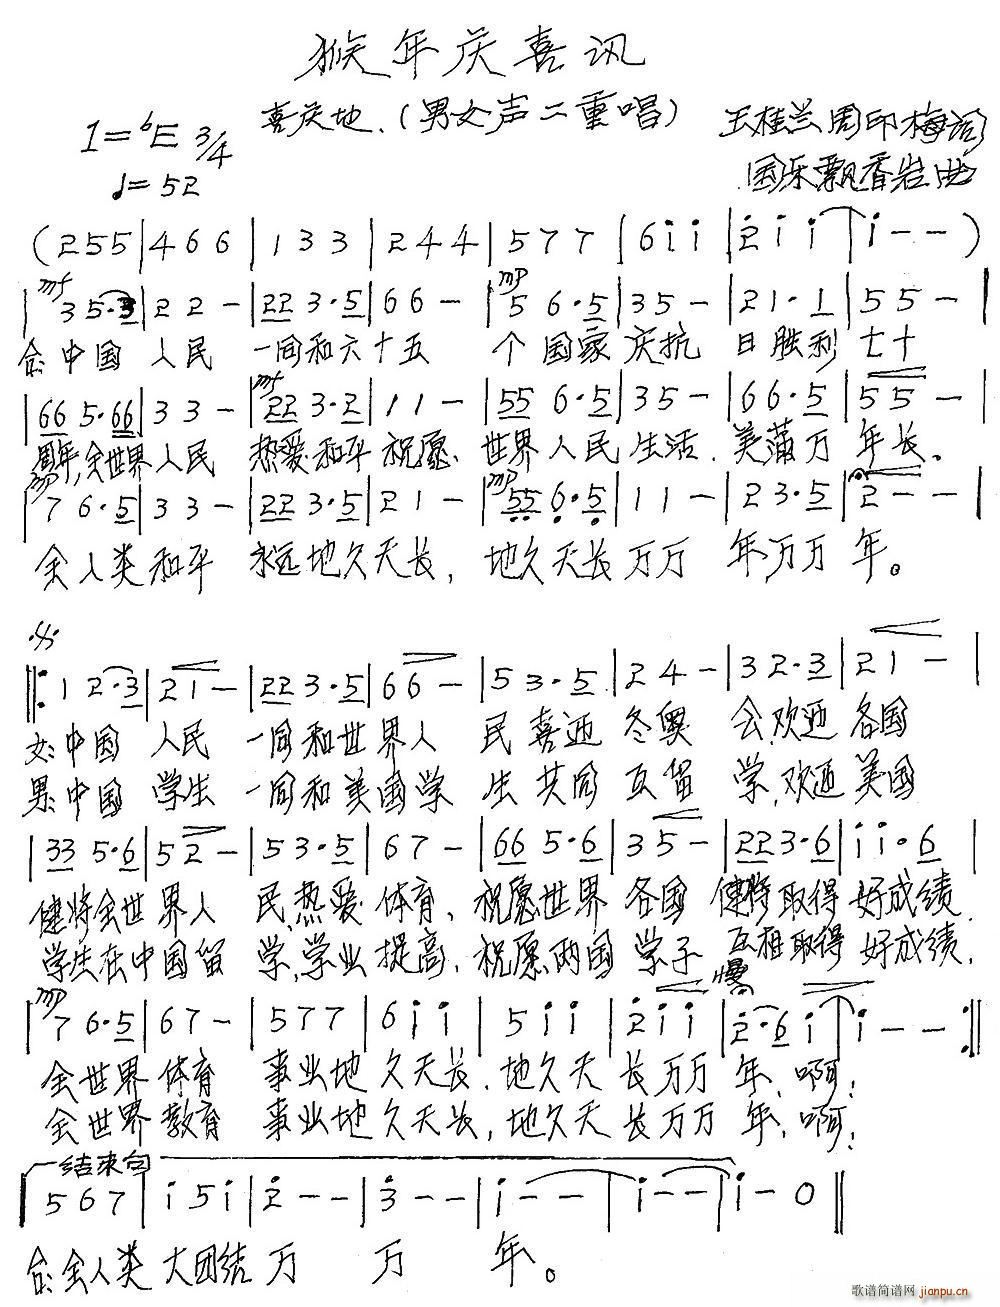 猴年庆喜讯
喜庆地.(男女声二重唱)
王桂兰周印梅词
1=♭E 3/4
♩=52
国乐飘香岩曲
(255|466|133|244|577|6i̇i̇|2̇i̇i̇|i̇--)
mf mp
|35·3|22-|223·5|66-|56·5|35-|21·1|55-|
合:中国 人民 一同和六十五 个国家庆抗 日胜利七十
mf
|665·66|33-|223·2|11-|556·5|35-|66·5|55-|
周年,全世界人民 热爱和平祝愿.世界人民生活.美满万年长。
mp mp
|76·5|33-|223·5|21-|556·5|11-|23·5|2--|
全人类和平 永远地久天长,地久天长万万年,万万年。
|:12·3|21-|223·5|66-|53·5|24-|32·3|21-|
女:中国 人民 一同和世界人 民喜迎冬奥 会,欢迎各国
男:中国 学生 一同和美国学 生共同互留 学,欢迎美国
|335·6|52-|53·5|67-|665·6|35-|223·6|i̇i̇·6|
健将全世界人 民,热爱体育,祝愿世界各国健将取得好成绩.
学生在中国留 学,学业提高.祝愿两国学子互相取得好成绩,
mp 慢
|76·5|67-|577|6i̇i̇|5i̇i̇|2̇i̇i̇|2̇·6i̇|i̇--:|
全世界体育 事业地久天长.地久天长万万年,啊;
全世界教育 事业地久天长,地久天长万万年,啊;
结束句
567|i̇5i̇|2̇--|3̇--|i̇--|i̇--|i̇-0‖
合:全人类 大团结万 万 年。
歌谱简谱网 jianpu.cn